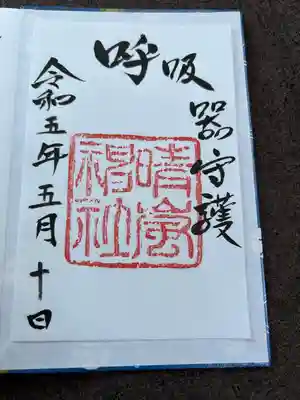 呼吸器守護
晴嵐神社
令和五年五月十日